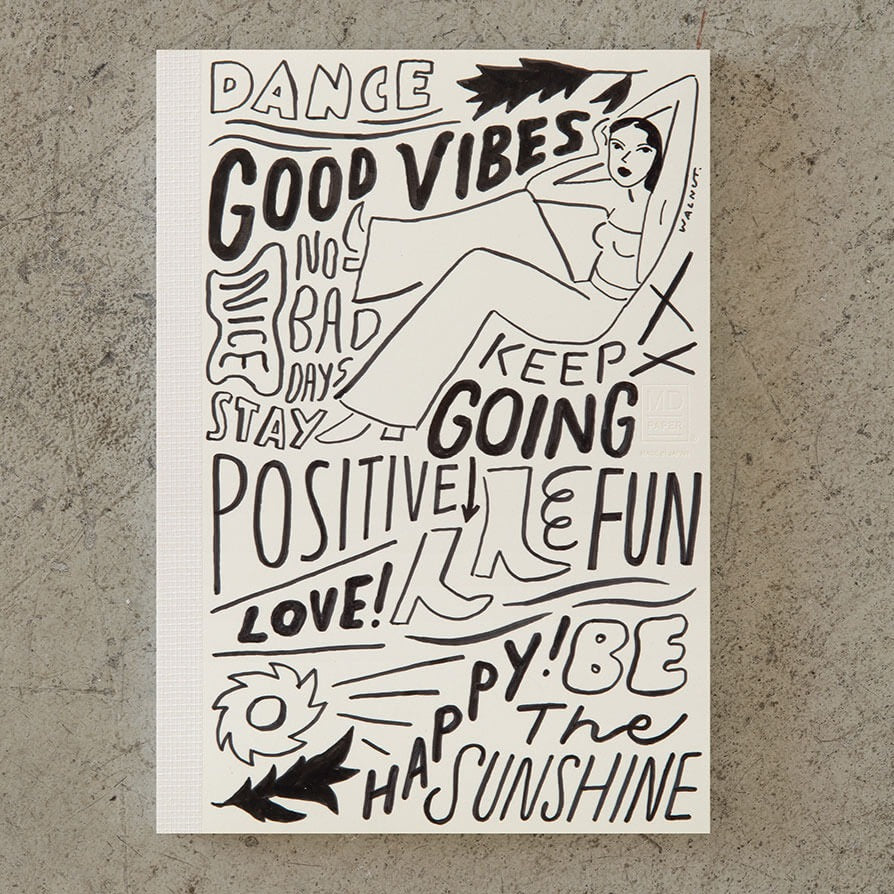 DANCE
GOOD VIBES
WALNUT.
NO
BAD
DAYS
NICE
KEEP
GOING
MD
PAPER
MADE IN JAPAN
STAY
POSITIVE
FUN
LOVE!
HAPPY!
BE
The
SUNSHINE